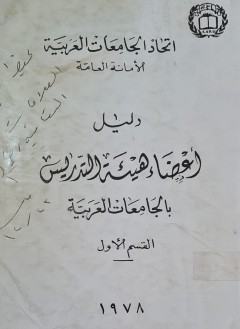 اتحاد الجامعات العربية
الأمانة العامة
دليل
أعضاء هيئة التدريس
بالجامعات العربية
القسم الأول
١٩٧٨